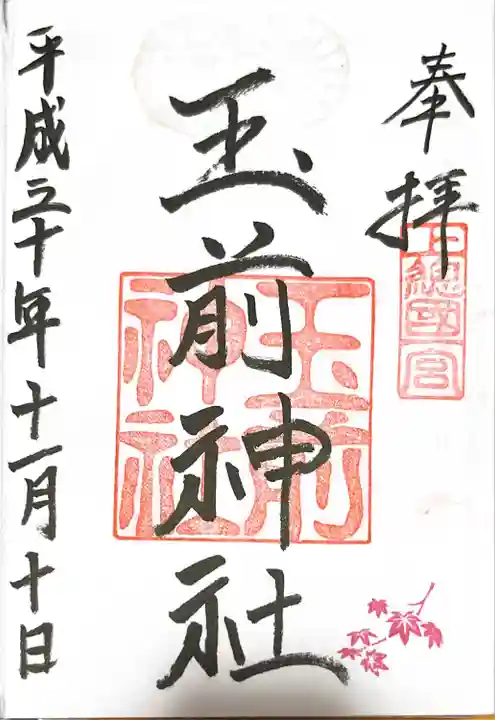 奉拝
上總國一宮
玉前神社
玉前神社
平成三十年十一月十日